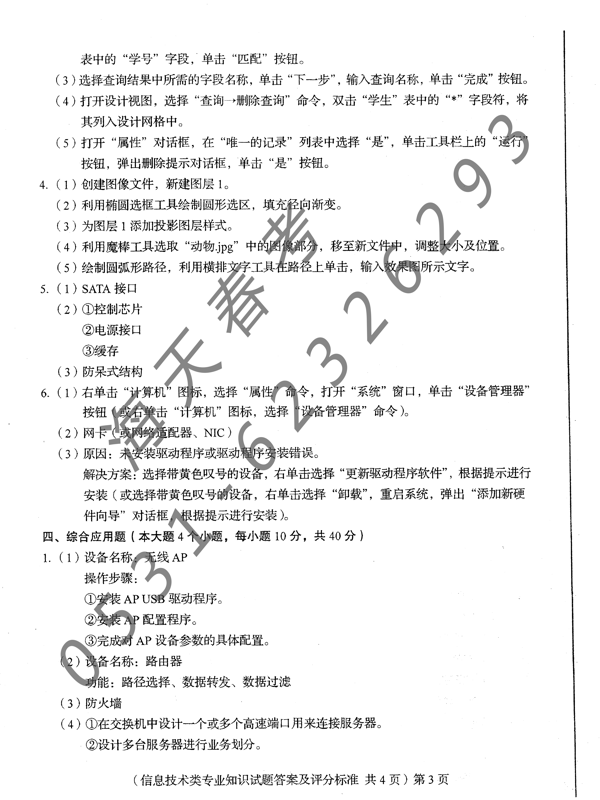 表中的“学号”字段，单击“匹配”按钮。
（3）选择查询结果中所需的字段名称，单击“下一步”，输入查询名称，单击“完成”按钮。
（4）打开设计视图，选择“查询→删除查询”命令，双击“学生”表中的“*”字段符，将
其列入设计网格中。
（5）打开“属性”对话框，在“唯一的记录”列表中选择“是”，单击工具栏上的“运行”
按钮，弹出删除提示对话框，单击“是”按钮。
4.（1）创建图像文件，新建图层1。
（2）利用椭圆选框工具绘制圆形选区，填充径向渐变。
（3）为图层1添加投影图层样式。
（4）利用魔棒工具选取“动物.jpg”中的图像部分，移至新文件中，调整大小及位置。
（5）绘制圆弧形路径，利用横排文字工具在路径上单击，输入效果图所示文字。
5.（1）SATA 接口
（2）①控制芯片
②电源接口
③缓存
（3）防呆式结构
6.（1）右单击“计算机”图标，选择“属性”命令，打开“系统”窗口，单击“设备管理器”
按钮（或右单击“计算机”图标，选择“设备管理器”命令）。
（2）网卡（或网络适配器、NIC）
（3）原因：未安装驱动程序或驱动程序安装错误。
解决方案：选择带黄色叹号的设备，右单击选择“更新驱动程序软件”，根据提示进行
安装（或选择带黄色叹号的设备，右单击选择“卸载”，重启系统，弹出“添加新硬
件向导”对话框，根据提示进行安装）。
四、综合应用题（本大题 4 个小题，每小题 10 分，共 40 分）
1.（1）设备名称：无线 AP
操作步骤：
①安装 AP USB 驱动程序。
②安装 AP 配置程序。
③完成对 AP 设备参数的具体配置。
（2）设备名称：路由器
功能：路径选择、数据转发、数据过滤
（3）防火墙
（4）①在交换机中设计一个或多个高速端口用来连接服务器。
②设计多台服务器进行业务划分。
（信息技术类专业知识试题答案及评分标准 共 4 页）第 3 页
海天春考
0531-62326293